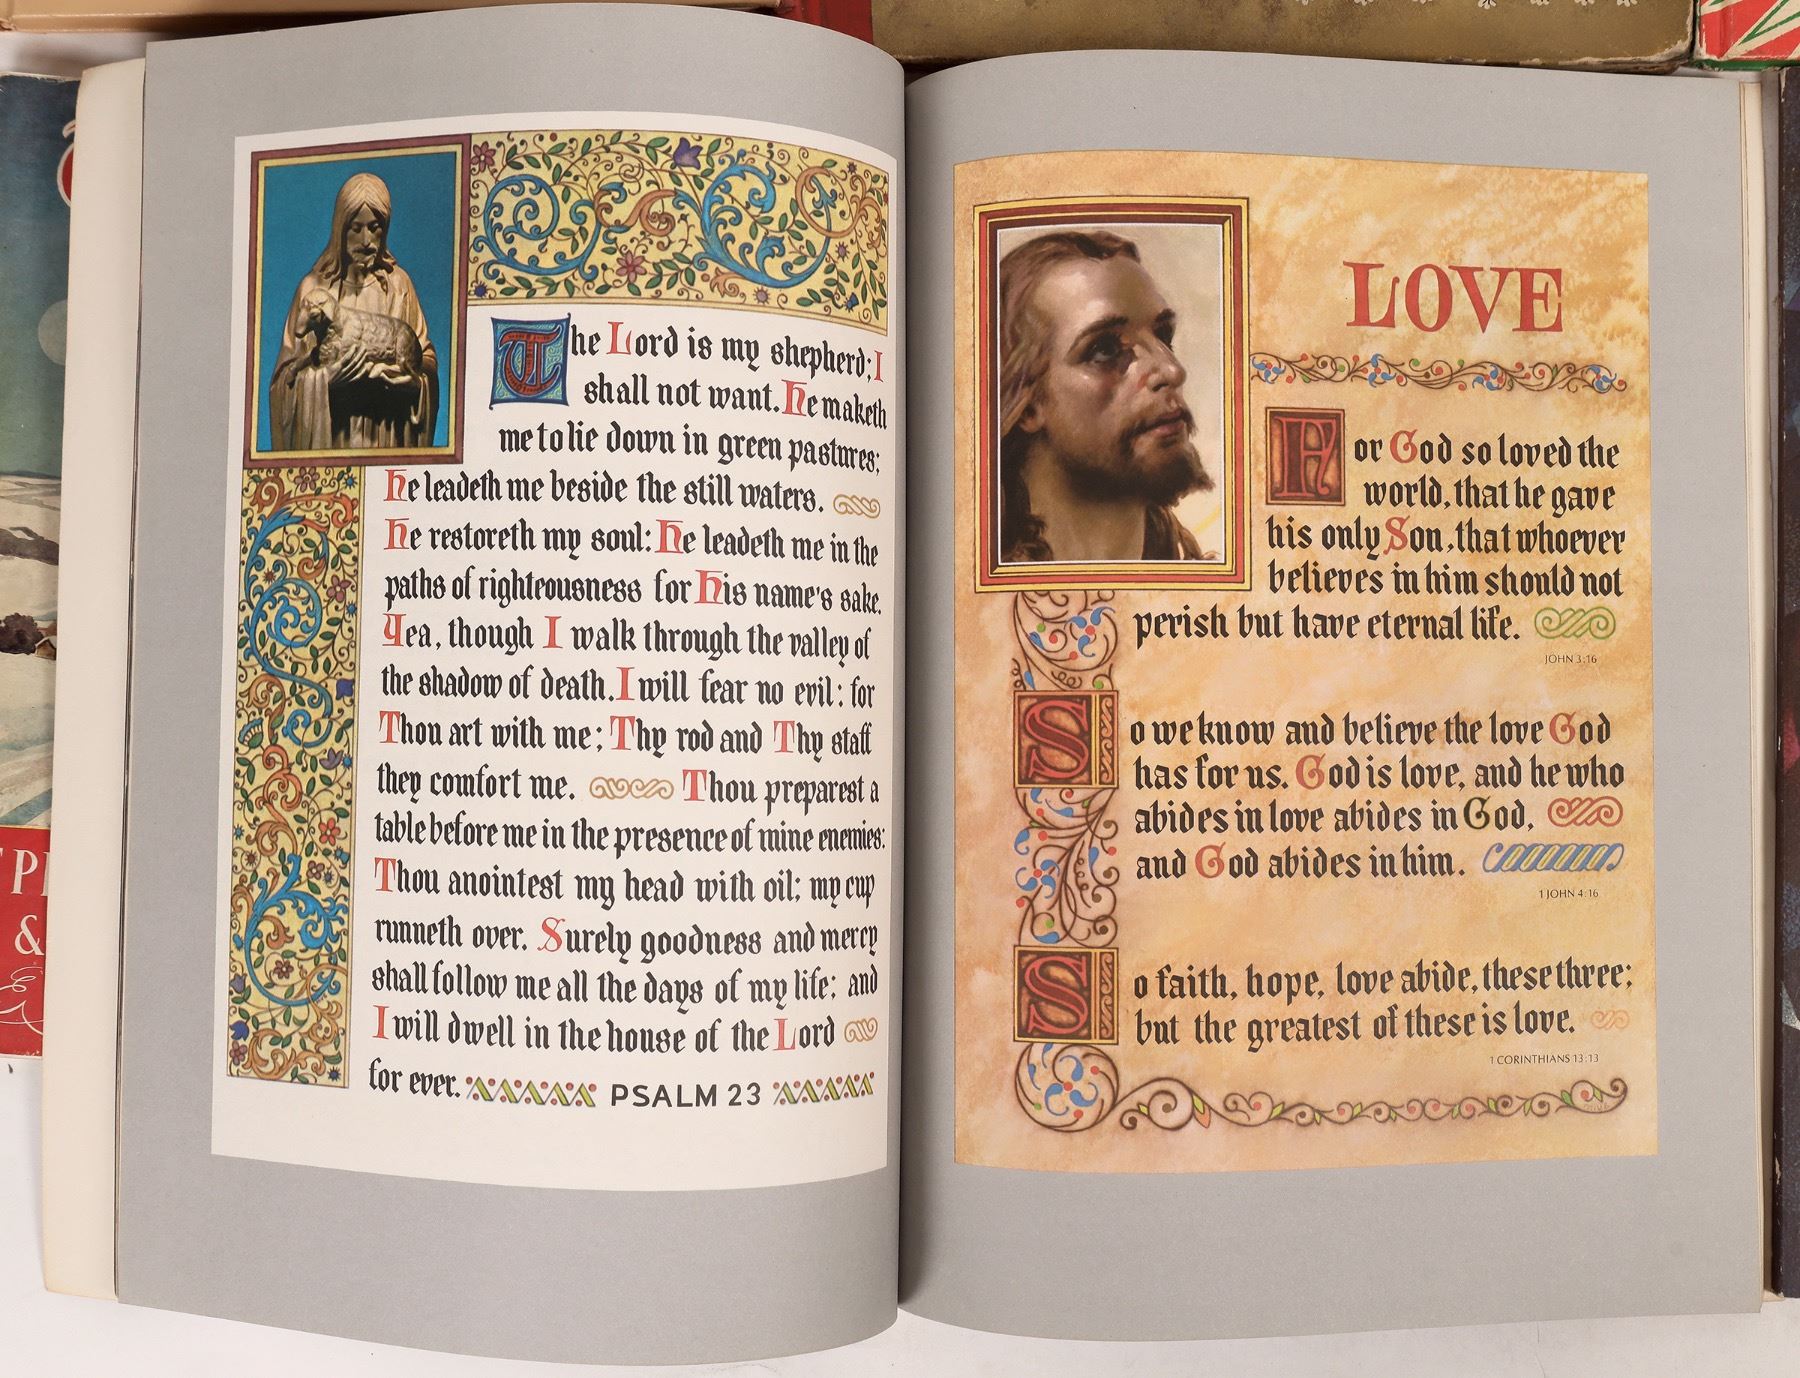 The Lord is my shepherd; I
shall not want. He maketh
me to lie down in green pastures;
He leadeth me beside the still waters.
He restoreth my soul: He leadeth me in the
paths of righteousness for His name's sake.
Yea, though I walk through the valley of
the shadow of death. I will fear no evil: for
Thou art with me; Thy rod and Thy staff
they comfort me. Thou preparest a
table before me in the presence of mine enemies:
Thou anointest my head with oil; my cup
runneth over. Surely goodness and mercy
shall follow me all the days of my life; and
I will dwell in the house of the Lord
for ever. PSALM 23
LOVE
For God so loved the
world, that he gave
his only Son, that whoever
believes in him should not
perish but have eternal life.
JOHN 3:16
So we know and believe the love God
has for us. God is love, and he who
abides in love abides in God,
and God abides in him.
1 JOHN 4:16
So faith, hope, love abide, these three;
but the greatest of these is love.
1 CORINTHIANS 13:13
&